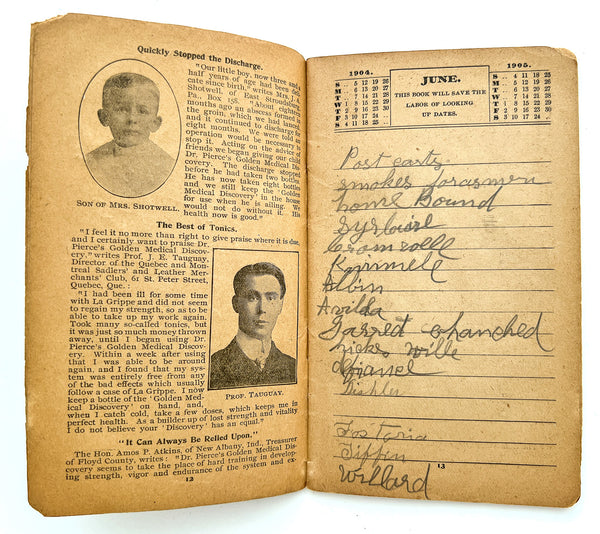 Quickly Stopped the Discharge.
"Our little boy, now three and a
half years of age had been deli-
cate since birth," writes Mrs. J. A.
Shotwell, of East Stroudsburg,
Pa., Box 158. "About eighteen
months ago an abscess formed in
the groin, which we had lanced,
and it continued to discharge for
eight months. We were told an
operation would be necessary to
stop it. Acting on the advice of
friends we began giving our child
Dr. Pierce's Golden Medical Dis-
covery. The discharge stopped
before he had taken two bottles.
He has now taken eight bottles
and we still keep the 'Golden
Medical Discovery' in the house
for use when he is ailing. We
would not do without it. His
health now is good."
SON OF MRS. SHOTWELL.
The Best of Tonics.
"I feel it no more than right to give praise where it is due,
and I certainly want to praise Dr.
Pierce's Golden Medical Discov-
ery," writes Prof. J. E. Tauguay,
Director of the Quebec and Mon-
treal Sadlers' and Leather Mer-
chants' Club, 61 St. Peter Street,
Quebec, Que.:
"I had been ill for some time
with La Grippe and did not seem
to regain my strength, so as to be
able to take up my work again.
Took many so-called tonics, but
it was just so much money thrown
away, until I began using Dr.
Pierce's Golden Medical Discov-
ery. Within a week after using
that I was able to be around
again, and I found that my sys-
tem was entirely free from any
of the bad effects which usually
follow a case of La Grippe. I now
keep a bottle of the 'Golden Med-
ical Discovery' on hand, and,
when I catch cold, take a few doses, which keeps me in
perfect health. As a builder up of lost strength and vitality
I do not believe your 'Discovery' has an equal."
PROF. TAUGUAY.
"It Can Always Be Relied Upon."
The Hon. Amos P. Atkins, of New Albany, Ind., Treasurer
of Floyd County, writes: "Dr. Pierce's Golden Medical Dis-
covery seems to take the place of hard training in develop-
ing strength, vigor and endurance of the system and ex-
12
1904. JUNE. 1905.
THIS BOOK WILL SAVE THE
LABOR OF LOOKING
UP DATES.
S .. 5 12 19 26
M .. 6 13 20 27
T .. 7 14 21 28
W 1 8 15 22 29
T 2 9 16 23 30
F 3 10 17 24 ..
S 4 11 18 25 ..
S .. 4 11 18 25
M .. 5 12 19 26
T .. 6 13 20 27
W .. 7 14 21 28
T 1 8 15 22 29
F 2 9 16 23 30
S 3 10 17 24 ..
Post
smokes
home Bound
Albin
Avilda
Garret
wille
Fostoria
Tiffin
Willard
13